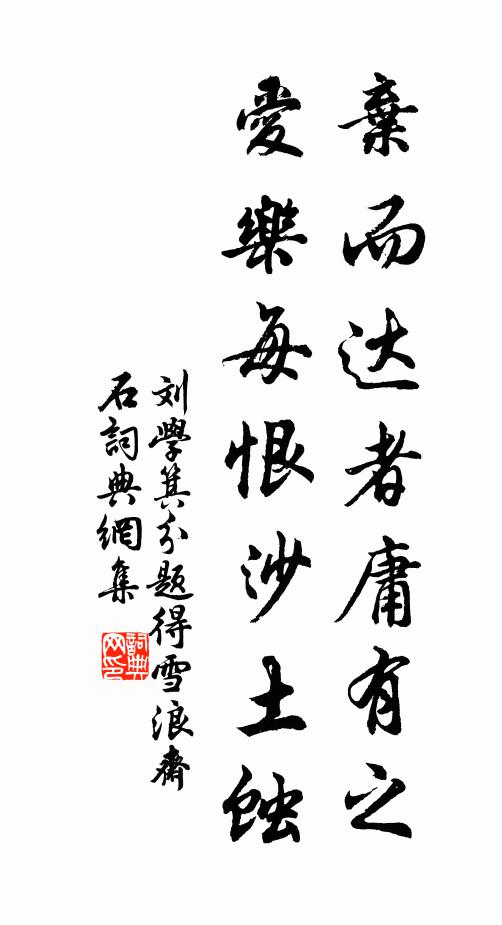 棄而达者庸有之
愛樂每恨沙土蝕
刘學箕分题得雪浪齋
石詞典網集
詞典网印